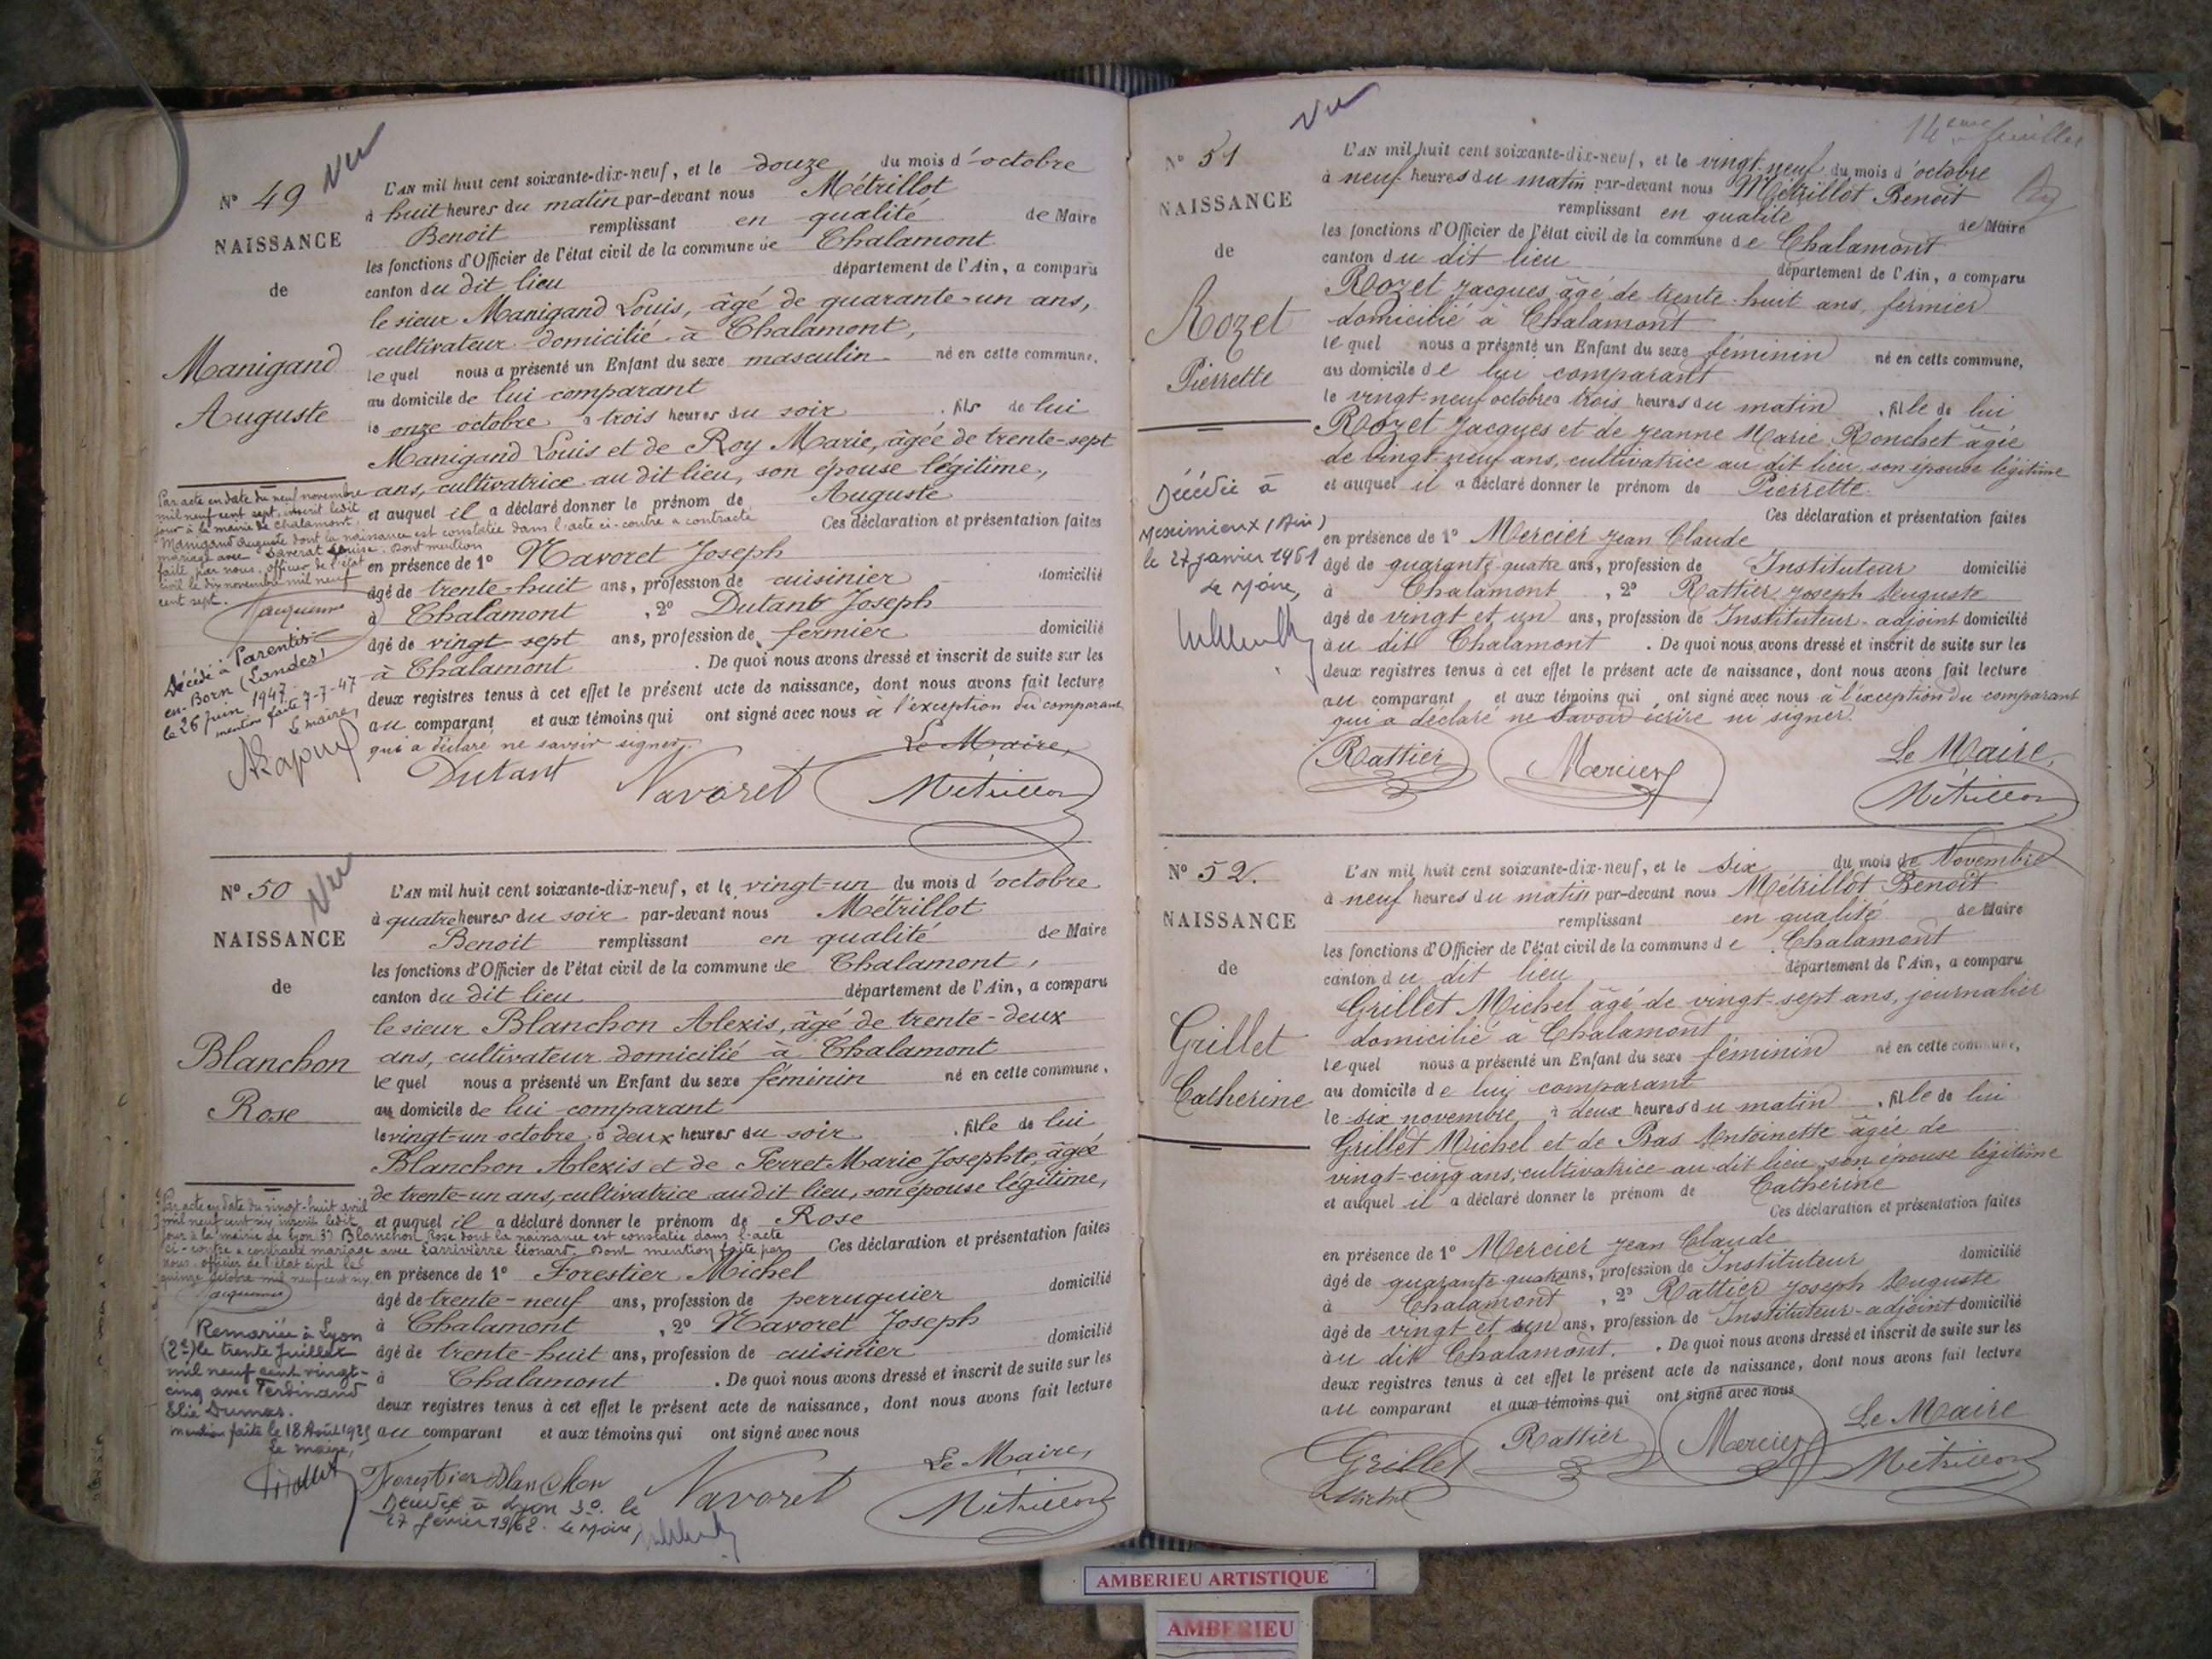 Nº 49
Vu
NAISSANCE
de
Manigand
Auguste
L'AN mil huit cent soixante-dix-neuf, et le douze du mois d'octobre
à huit heures du matin par-devant nous Métrillot
Benoit remplissant en qualité de Maire
les fonctions d'Officier de l'état civil de la commune de Chalamont
canton du dit lieu département de l'Ain, a comparu
le sieur Manigand Louis, âgé de quarante-un ans,
cultivateur domicilié à Chalamont,
lequel nous a présenté un Enfant du sexe masculin né en cette commune,
au domicile de lui comparant
le onze octobre à trois heures du soir, fils de lui
Manigand Louis et de Roy Marie, âgée de trente-sept
ans, cultivatrice au dit lieu, son épouse légitime,
et auquel il a déclaré donner le prénom de Auguste
Ces déclaration et présentation faites
en présence de 1º Navoret Joseph
âgé de trente-huit ans, profession de cuisinier domicilié
à Chalamont, 2º Dutant Joseph
âgé de vingt-sept ans, profession de fermier domicilié
à Chalamont. De quoi nous avons dressé et inscrit de suite sur les
deux registres tenus à cet effet le présent acte de naissance, dont nous avons fait lecture
au comparant et aux témoins qui ont signé avec nous à l'exception du comparant
qui a déclaré ne savoir signer.
Le Maire,
Dutant Navoret Métrillot
Par acte en date du neuf novembre
mil neuf cent sept, inscrit ledit
jour à la mairie de Chalamont,
Manigand Auguste dont la naissance est constatée dans l'acte ci-contre a contracté
mariage avec Saverat Louise. Dont mention
faite par nous, officier de l'état
civil le dix novembre mil neuf
cent sept.
Décédé à Parentis
en-Born (Landes)
le 26 juin 1947
mention faite 7-7-47
Le maire,
Nº 50
Vu
NAISSANCE
de
Blanchon
Rose
L'AN mil huit cent soixante-dix-neuf, et le vingt-un du mois d'octobre
à quatre heures du soir par-devant nous Métrillot
Benoit remplissant en qualité de Maire
les fonctions d'Officier de l'état civil de la commune de Chalamont,
canton du dit lieu département de l'Ain, a comparu
le sieur Blanchon Alexis, âgé de trente-deux
ans, cultivateur domicilié à Chalamont
lequel nous a présenté un Enfant du sexe féminin né en cette commune,
au domicile de lui comparant
le vingt-un octobre à deux heures du soir, fille de lui
Blanchon Alexis et de Perret Marie Josephte, âgée
de trente-un ans, cultivatrice au dit lieu, son épouse légitime,
et auquel il a déclaré donner le prénom de Rose
Ces déclaration et présentation faites
en présence de 1º Forestier Michel
âgé de trente-neuf ans, profession de perruquier domicilié
à Chalamont, 2º Navoret Joseph
âgé de trente-huit ans, profession de cuisinier domicilié
à Chalamont. De quoi nous avons dressé et inscrit de suite sur les
deux registres tenus à cet effet le présent acte de naissance, dont nous avons fait lecture
au comparant et aux témoins qui ont signé avec nous
Le Maire,
Forestier Blanchon Navoret Métrillot
Par acte en date du vingt-huit avril
mil neuf cent six, inscrit ledit
jour à la mairie de Lyon 3º Blanchon Rose dont la naissance est constatée dans l'acte
ci-contre a contracté mariage avec Larrivierre Léonard. Dont mention faite par
nous, officier de l'état civil le
quinze octobre mil neuf cent six.
Remariée à Lyon
(2e) le trente Juillet
mil neuf cent vingt-
cinq avec Ferdinand
Elie Dumas.
Mention faite le 18 Août 1925
Le maire,
Décédée à Lyon 3º. le
27 février 1962. Le Maire,
14ème feuillet
Nº 51
Vu
NAISSANCE
de
Rozet
Pierrette
L'AN mil huit cent soixante-dix-neuf, et le vingt-neuf du mois d'octobre
à neuf heures du matin par-devant nous Métrillot Benoit
remplissant en qualité de Maire
les fonctions d'Officier de l'état civil de la commune de Chalamont
canton du dit lieu département de l'Ain, a comparu
Rozet Jacques, âgé de trente-huit ans, fermier
domicilié à Chalamont
lequel nous a présenté un Enfant du sexe féminin né en cette commune,
au domicile de lui comparant
le vingt-neuf octobre à trois heures du matin, fille de lui
Rozet Jacques et de Jeanne Marie Ronchet âgée
de vingt-neuf ans, cultivatrice au dit lieu, son épouse légitime
et auquel il a déclaré donner le prénom de Pierrette.
Ces déclaration et présentation faites
en présence de 1º Mercier Jean Claude
âgé de quarante-quatre ans, profession de Instituteur domicilié
à Chalamont, 2º Rattier Joseph Auguste
âgé de vingt et un ans, profession de Instituteur-adjoint domicilié
au dit Chalamont. De quoi nous avons dressé et inscrit de suite sur les
deux registres tenus à cet effet le présent acte de naissance, dont nous avons fait lecture
au comparant et aux témoins qui ont signé avec nous à l'exception du comparant
qui a déclaré ne savoir écrire ni signer.
Le Maire,
Rattier Mercier Métrillot
Décédée à
Meximieux (Ain)
le 27 janvier 1961
Le Maire,
Nº 52.
NAISSANCE
de
Grillet
Catherine
L'AN mil huit cent soixante-dix-neuf, et le six du mois de Novembre
à neuf heures du matin par-devant nous Métrillot Benoit
remplissant en qualité de Maire
les fonctions d'Officier de l'état civil de la commune de Chalamont
canton du dit lieu département de l'Ain, a comparu
Grillet Michel âgé de vingt-sept ans, journalier
domicilié à Chalamont
lequel nous a présenté un Enfant du sexe féminin né en cette commune,
au domicile de lui comparant
le six novembre à deux heures du matin, fille de lui
Grillet Michel et de Bas Antoinette âgée de
vingt-cinq ans, cultivatrice au dit lieu, son épouse légitime
et auquel il a déclaré donner le prénom de Catherine
Ces déclaration et présentation faites
en présence de 1º Mercier Jean Claude
âgé de quarante-quatre ans, profession de Instituteur domicilié
à Chalamont, 2º Rattier Joseph Auguste
âgé de vingt et un ans, profession de Instituteur-adjoint domicilié
au dit Chalamont. De quoi nous avons dressé et inscrit de suite sur les
deux registres tenus à cet effet le présent acte de naissance, dont nous avons fait lecture
au comparant et aux témoins qui ont signé avec nous
Le Maire
Grillet Rattier Mercier Métrillot
Michel
AMBERIEU ARTISTIQUE
AMBERIEU